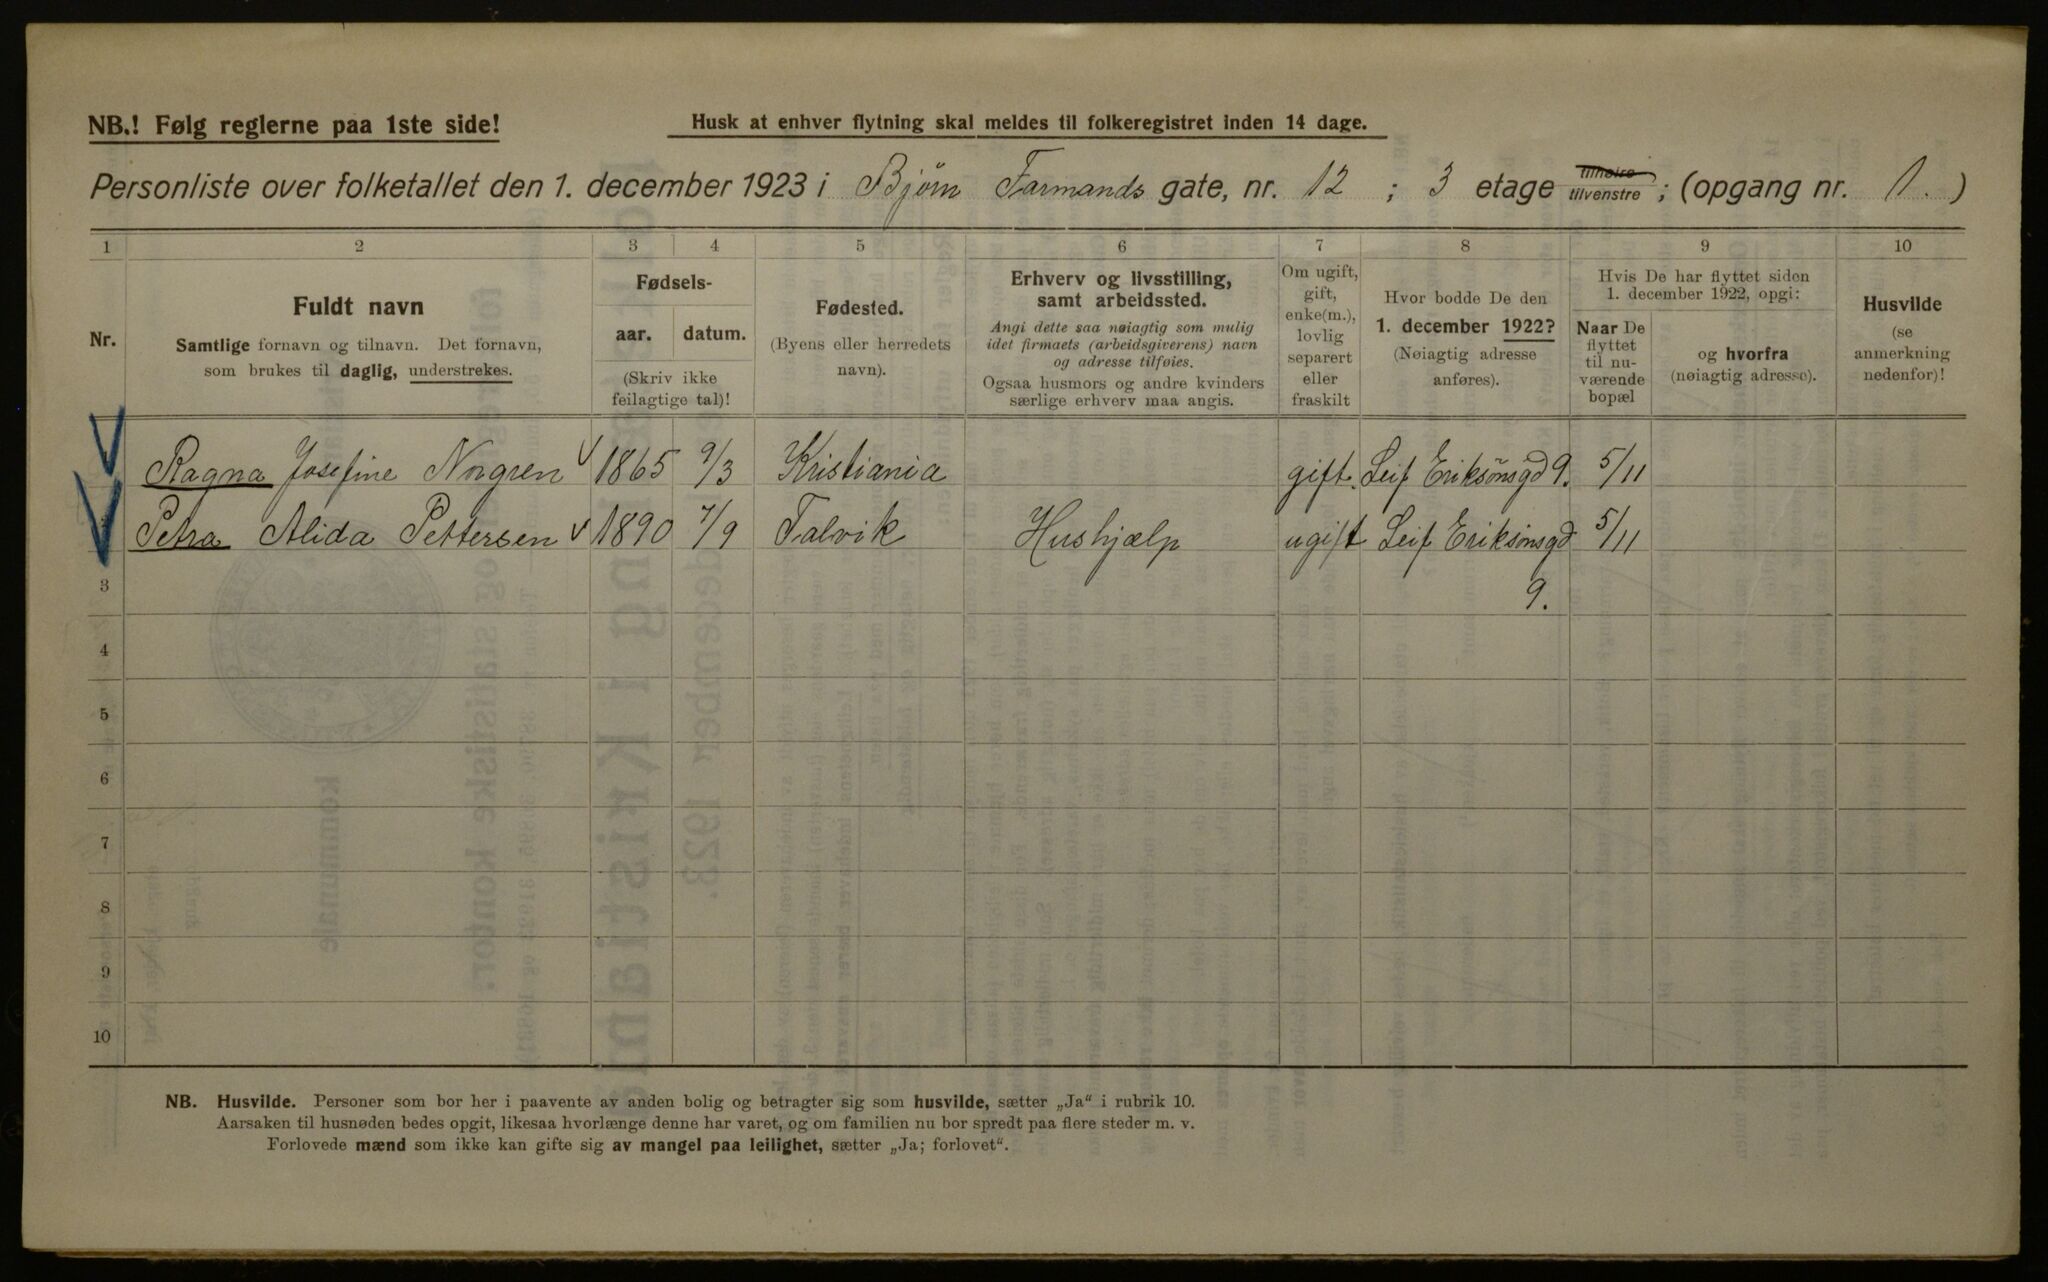 NB.! Følg reglerne paa 1ste side!
Husk at enhver flytning skal meldes til folkeregistret inden 14 dage.
Personliste over folketallet den 1. december 1923 i Bjørn Farmands gate, nr. 12 ; 3 etage tilhøire tilvenstre ; (opgang nr. 1. )
1 2 3 4 5 6 7 8 9 10
Nr.
Fuldt navn
Samtlige fornavn og tilnavn. Det fornavn,
som brukes til daglig, understrekes.
Fødsels-
aar. datum.
(Skriv ikke
feilagtige tal)!
Fødested.
(Byens eller herredets
navn).
Erhverv og livsstilling,
samt arbeidssted.
Angi dette saa nøiagtig som mulig
idet firmaets (arbeidsgiverens) navn
og adresse tilføies.
Ogsaa husmors og andre kvinders
særlige erhverv maa angis.
Om ugift,
gift,
enke(m.),
lovlig
separert
eller
fraskilt
Hvor bodde De den
1. december 1922?
(Nøiagtig adresse
anføres).
Hvis De har flyttet siden
1. december 1922, opgi:
Naar De
flyttet
til nu-
værende
bopæl
og hvorfra
(nøiagtig adresse).
Husvilde
(se
anmerkning
nedenfor)!
Ragna Josefine Norgren 1865 9/3 Kristiania gift. Leif Eriksønsgd 9. 5/11
Petra Alida Pettersen 1890 7/9 Talvik Hushjælp ugift Leif Eriksønsgd 5/11
3 9.
4
5
6
7
8
9
10
NB. Husvilde. Personer som bor her i paavente av anden bolig og betragter sig som husvilde, sætter „Ja“ i rubrik 10.
Aarsaken til husnøden bedes opgit, likesaa hvorlænge denne har varet, og om familien nu bor spredt paa flere steder m. v.
Forlovede mænd som ikke kan gifte sig av mangel paa leilighet, sætter „Ja; forlovet“.